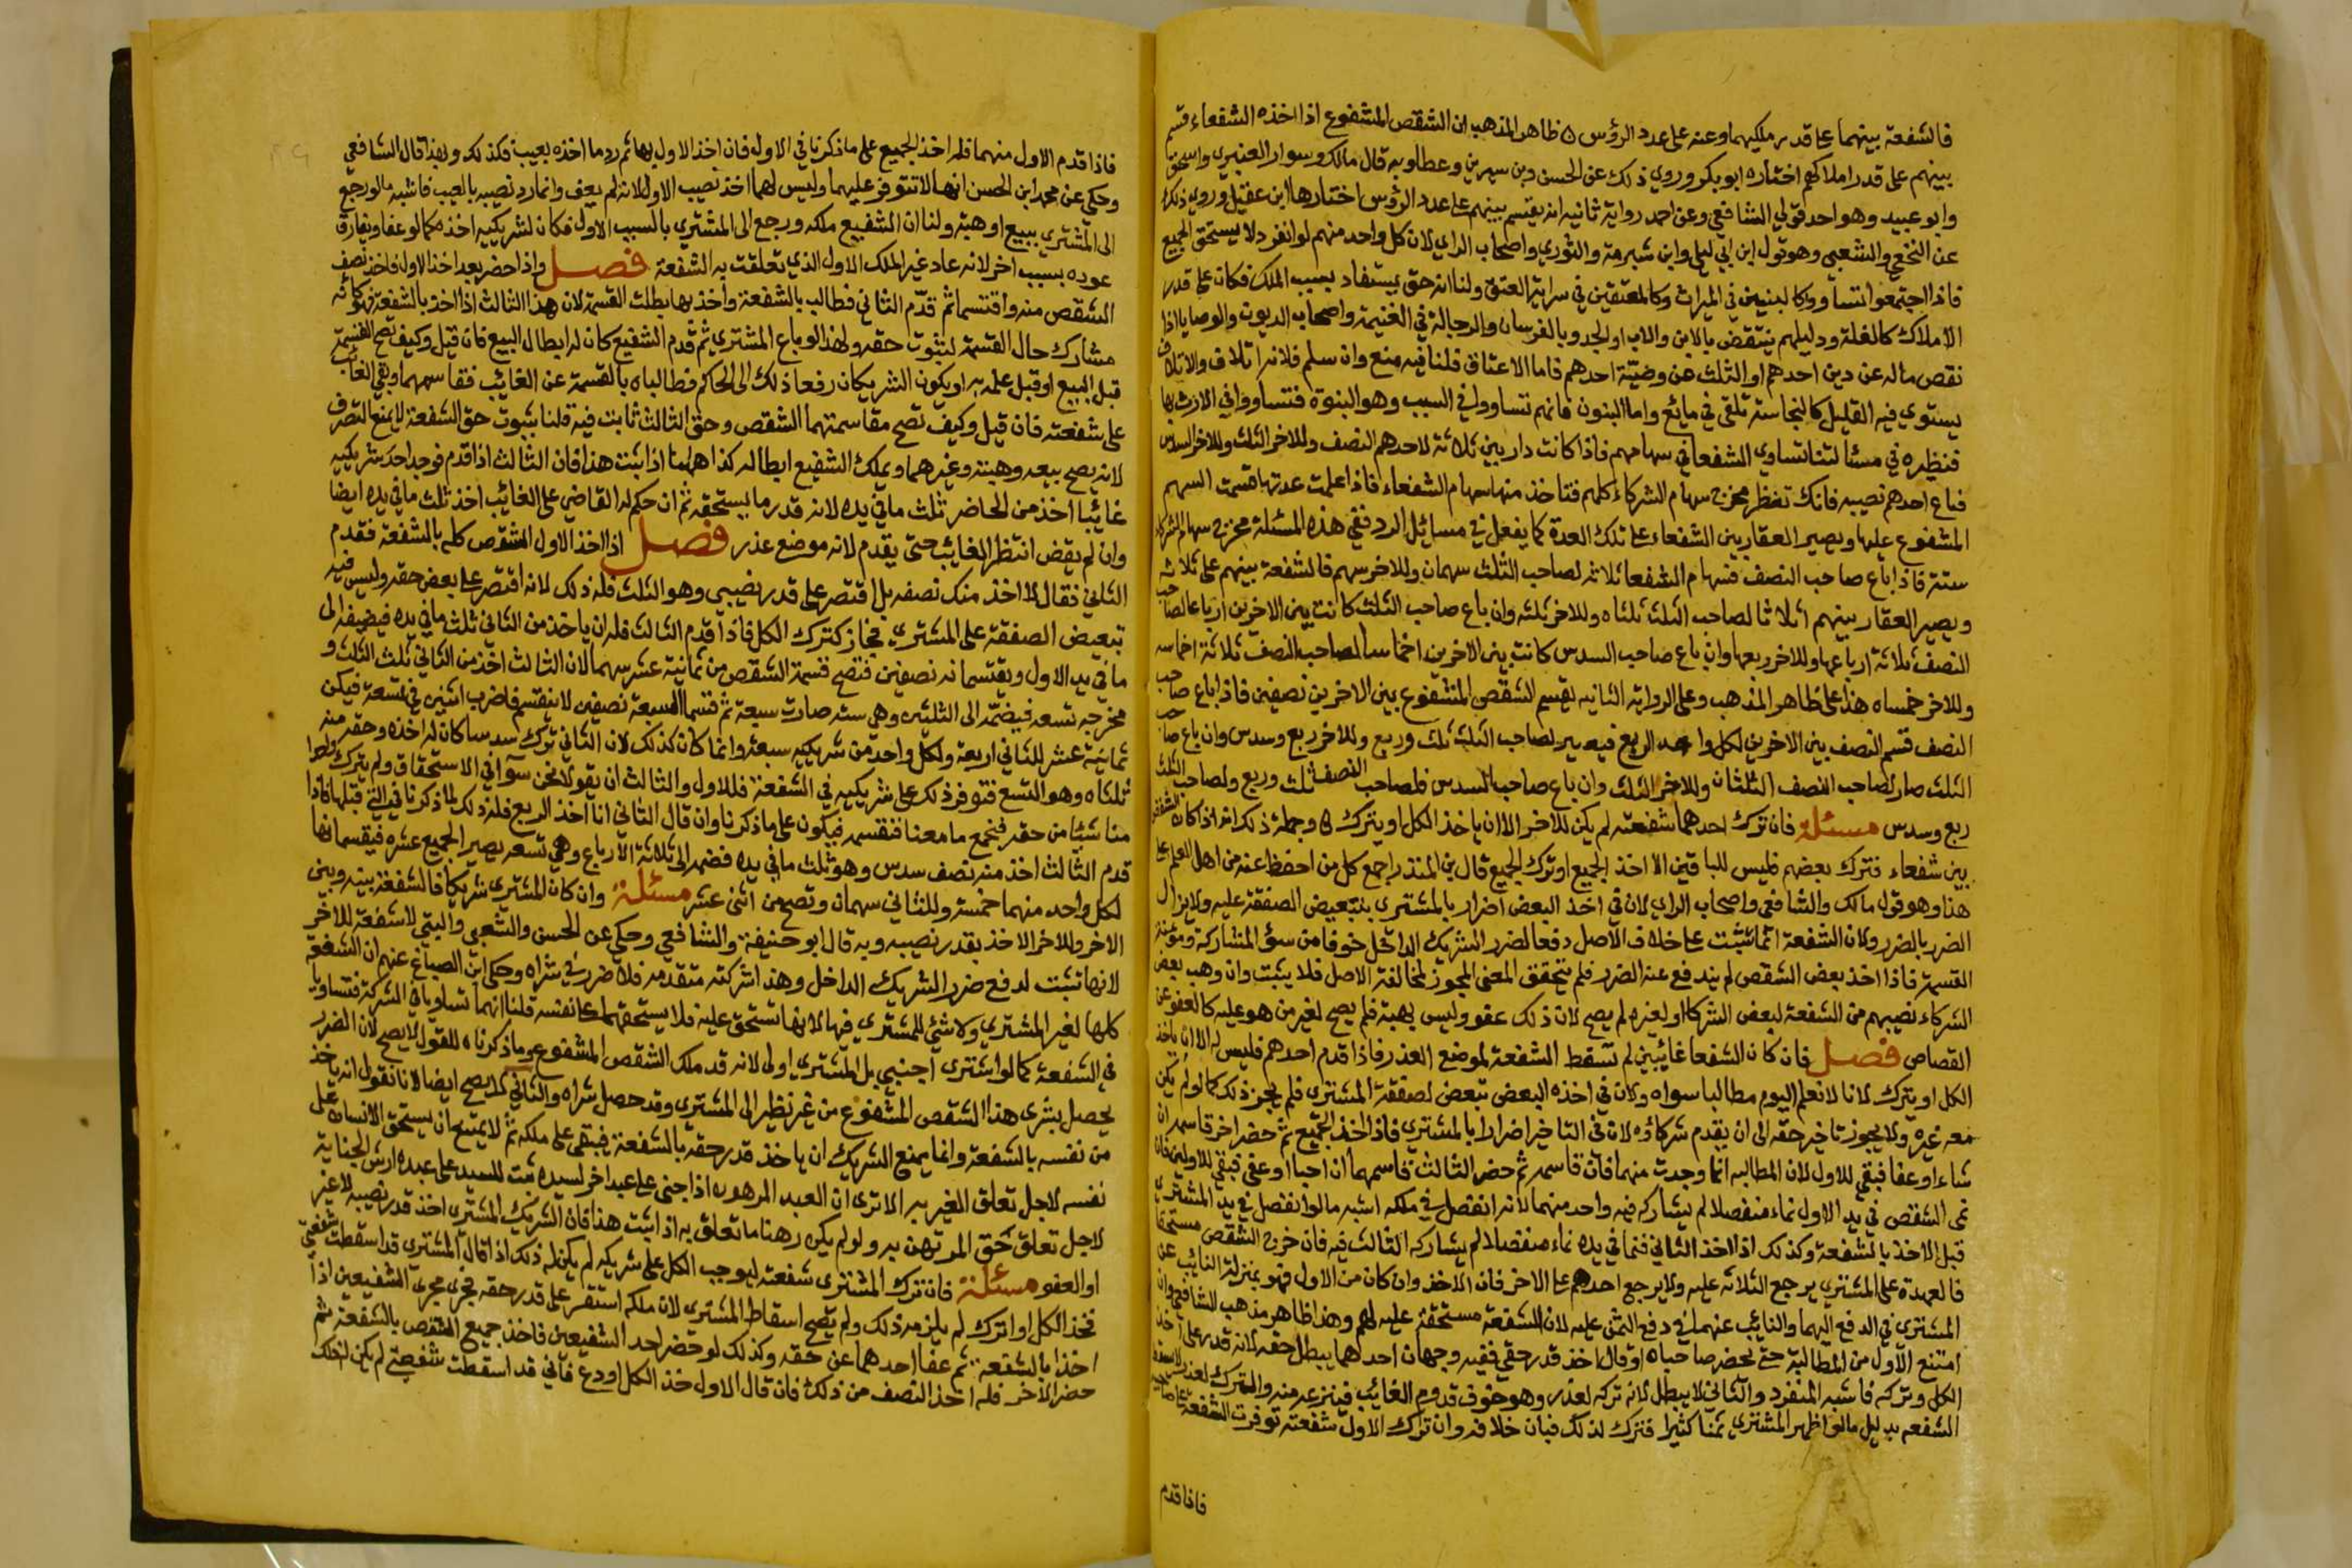 فالشفعة بينهما على قدر ملكيهما وعنه على عدد الرؤس ظاهر المذهب ان الشقص المشفوع اذا اخذه الشفعاء قسم
بينهم على قدر املاكهم اختاره ابو بكر وروي ذلك عن الحسن وبن سيرين وعطا وبه قال مالك وسوار العنبري واسحق
وابو عبيد وهو احد قولي الشافعي وعن احمد رواية ثانيه انه يقسم بينهم على عدد الرؤس اختارها ابن عقيل وروي ذلك
عن النخعي والشعبي وهو قول ابن ابي ليلى وابن شبرمة والثوري واصحاب الراي لان كل واحد منهم لو انفرد لا يستحق الجميع
فاذا اجتمعوا تساووا كالبنين في الميراث وكالمعتقين في سراية العتق ولنا انه حق يستفاد بسبب الملك فكان على قدر
الاملاك كالغلة ودليلهم ينتقض بالابن والاب او الجد وبالفرسان والرجالة في الغنيمة واصحاب الديون والوصايا اذا
نقص ماله عن دين احدهم او الثلث عن وصيّة احدهم فاما الاعتاق قلنا فيه منع وان سلم فلانه اتلاف والاتلاف
يستوي فيه القليل كالنجاسة تلقى في مايع واما البنون فانهم تساووا في السبب وهو البنوة فتساووا في الارث بها
فنظيره في مسئالتنا تساوي الشفعا في سهامهم فاذا كانت دار بين ثلاثة لاحدهم النصف وللاخر الثلث وللاخر السدس
فباع احدهم نصيبه فانك تنظر مخرج سهام الشركاء كلهم فتاخذ منها سهام الشفعاء فاذا علمت عدتها قسمت السهم
المشفوع عليها ويصير العقار بين الشفعاء على تلك العدة كما يفعل في مسائل الرد ففي هذه المسئلة مخرج سهام الشركاء
ستة فاذا باع صاحب النصف فسهام الشفعا ثلاثه لصاحب الثلث سهمان وللاخر سهم فالشفعة بينهم على ثلاثه
ويصير العقار بينهم اثلاثا لصاحب الثلث ثلثاه وللاخر ثلثه وان باع صاحب الثلث كانت بين الاخرين ارباعا لصاحب
النصف ثلاثة ارباعها وللاخر ربعها وان باع صاحب السدس كانت بين الاخرين اخماسا لصاحب النصف ثلاثة اخماسه
وللاخر خمساه هذا على ظاهر المذهب وعلى الرواية الثانيه يقسم الشقص المشفوع بين الاخرين نصفين فاذا باع صاحب
النصف قسم النصف بين الاخرين لكل واحد الربع فيصير لصاحب الثلث ثلث وربع وللاخر ربع وسدس وان باع صاحب
الثلث صار لصاحب النصف الثلثان وللاخر الثلث وان باع صاحب السدس فلصاحب النصف ثلث وربع ولصاحب الثلث
ربع وسدس مسئلة فان ترك احدهما شفعته لم يكن للاخر الا ان ياخذ الكل او يترك وجملة ذلك انه اذا كان الشقص
بين شفعاء فترك بعضهم فليس للباقين الا اخذ الجميع او ترك الجميع قال بن المنذر اجمع كل من احفظ عنه من اهل العلم على
هذا وهو قول مالك والشافعي واصحاب الراي لان في اخذ البعض اضرار بالمشتري بتبعيض الصفقة عليه ولا يزال
الضرر بالضرر ولان الشفعة انما تثبت على خلاف الاصل دفعا لضرر الشريك الداخل خوفا من سؤ المشاركة ومؤنة
القسمة فاذا اخذ بعض الشقص لم يندفع عنه الضرر فلم يتحقق المعنى المجوز لمخالفة الاصل فلا يثبت وان وهب بعض
الشركاء نصيبهم من الشفعة لبعض الشركا او لغيره لم يصح لان ذلك عفو وليس بهبة فلم يصح لغير من هو عليه كالعفو عن
القصاص فصل فان كان الشفعا غائبين لم تسقط الشفعة لموضع العذر فاذا قدم احدهم فليس له الا ان ياخذ
الكل او يترك لانا لا نعلم اليوم مطالبا سواه ولان في اخذه البعض تبعض لصفقة المشتري فلم يجز ذلك كما لو لم يكن
معه غيره ولا يجوز تاخير حقه الى ان يقدم شركاؤه لان في التاخير اضرارا بالمشتري فاذا اخذ الجميع ثم حضر اخر قاسمه ان
شاء او عفا فبقي للاول لان المطالبه انما وجدت منهما فان قاسمه ثم حضر الثالث قاسمهما ان احبا او عفى فبقي للاولين فان
نمى الشقص في يد الاول نماء منفصلا لم يشاركه فيه واحد منهما لانه انفصل في ملكه اشبه ما لو انفصل في يد المشتري
قبل الاخذ بالشفعة وكذلك اذا اخذ الثاني فنما في يده نماء منفصلا لم يشاركه الثالث فيه فان خرج الشقص مستحقا
فالعهدة على المشتري يرجع الثلاثه عليه ولا يرجع احدهم على الاخر فان الاخذ وان كان من الاول فهو بمنزلة النائب عن
المشتري في الدفع اليهما والنائب عنهما في دفع الثمن عليه لان الشفعة مستحقة عليه لهم وهذا ظاهر مذهب الشافعي وان
امتنع الاول من المطالبة حتى يحضر صاحباه او قال اخذ قدر حقي ففيه وجهان احدهما يبطل حقه لانه قدر على اخذ
الكل وتركه فاشبه المنفرد والثاني لا يبطل لانه تركه لعذر وهو خوف قدوم الغائب فينزعه منه والترك لعذر لا يسقط
الشفعه بدليل ما لو اظهر المشتري ثمنا كثيرا فترك لذلك فبان خلافه وان ترك الاول شفعته توفرت الشفعة على صاحبيه
فاذا قدم
فاذا قدم الاول منهما فله اخذ الجميع على ما ذكرنا في الاول فان اخذ الاول بها ثم رد ما اخذه بعيب فكذلك وبهذا قال الشافعي
وحكي عن محمد ابن الحسن انها لا تتوفر عليهما وليس لهما اخذ نصيب الاول لانه لم يعف وانما رد نصيبه بالعيب فاشبه ما لو رجع
الى المشتري ببيع او هبة ولنا ان الشفيع ملكه ورجع الى المشتري بالسبب الاول فكان لشريكيه اخذه كما لو عفا ويفارق
عوده بسبب اخر لانه عاد غير الملك الاول الذي تعلقت به الشفعة فصل واذا حضر بعد اخذ الاول فاخذ نصف
الشقص منه واقتسما ثم قدم الثاني فطالب بالشفعة واخذ بها بطلت القسمة لان هذا الثالث اذا اخذ بالشفعة فهو كانه
مشارك حال القسمة لثبوت حقه ولهذا لو باع المشتري ثم قدم الشفيع كان له ابطال البيع فان قيل وكيف تصح القسمة
قبل البيع او قبل علمه به او يكون الشريكان رفعا ذلك الى الحاكم فطالباه بالقسمة عن الغائب فقاسمهما وبقي الغائب
على شفعته فان قيل وكيف تصح مقاسمتهما الشقص وحق الثالث ثابت فيه قلنا ثبوت حق الشفعة لا يمنع التصرف
لانه يصح بيعه وهبته وغيرهما ويملك الشفيع ابطاله كذا هاهنا اذا ثبت هذا فان الثالث اذا قدم فوجد احد شريكيه
غائبا اخذ من الحاضر ثلث ما في يده لانه قدر ما يستحقه ثم ان حكم له القاضي على الغائب اخذ ثلث ما في يده ايضا
وان لم يقض انتظر الغائب حتى يقدم لانه موضع عذر فصل اذا اخذ الاول الشقص كله بالشفعة فقدم
الثاني فقال لا اخذ منك نصفه بل اقتصر على قدر نصيبي وهو الثلث فله ذلك لانه اقتصر على بعض حقه وليس فيه
تبعيض الصفقة على المشتري فجاز كترك الكل فاذا قدم الثالث فله ان ياخذ من الثاني ثلث ما في يده فيضيفه الى
ما في يد الاول ويقتسمانه نصفين فتصح قسمة الشقص من ثمانية عشر سهما لان الثالث اخذ من الثاني ثلث الثلث و
مخرجه تسعه فيضمه الى الثلثين وهي سته صارت سبعة ثم قسما السبعة نصفين لا ينقسم فاضرب اثنين في تسعة فيكن
ثمانية عشر للثاني اربعة ولكل واحد من شريكيه سبعة وانما كان كذلك لان الثاني ترك سدسا كان له اخذه وحقه منه
ثلثاه وهو التسع فتوفر ذلك على شريكيه في الشفعة فللاول والثالث ان يقولا نحن سوآ في الاستحقاق ولم يترك واحد
منا شيئا من حقه فنجمع ما معنا فنقسمه فيكون على ما ذكرنا وان قال الثاني انا اخذ الربع فله ذلك لما ذكرنا في التي قبلها فاذا
قدم الثالث اخذ منه نصف سدس وهو ثلث ما في يده فضمه الى ثلاثة الارباع وهي تسعه يصير الجميع عشره فيقسمانها
لكل واحد منهما خمسة وللثاني سهمان وتصح من اثنى عشر مسئلة وان كان المشتري شريكا فالشفعة بينه وبين
الاخر وللاخر الاخذ بقدر نصيبه وبه قال ابو حنيفة والشافعي وحكي عن الحسن والشعبي والبتي لا شفعة للاخر
لانها تثبت لدفع ضرر الشريك الداخل وهذا شركته متقدمه فلا ضرر في شراه وحكى ابن الصباغ عنهم ان الشفعة
كلها لغير المشتري ولا شئي للمشتري فيها لانها تستحق عليه فلا يستحقها على نفسه قلنا انهما تساويا في الشركة فتساويا
في الشفعة كما لو اشترى اجنبي بل المشتري اولى لانه قد ملك الشقص المشفوع وما ذكرناه للقول الاول لا يصح لان الضرر
يحصل بشرى هذا الشقص المشفوع من غير نظير الى المشتري وقد حصل شراه والثاني لا يصح ايضا لانا نقول انه ياخذ
من نفسه بالشفعة وانما يمنع الشريك ان ياخذ قدر حقه بالشفعة فيبقى على ملكه ثم لا يمتنع ان يستحق الانسان على
نفسه لاجل تعلق الغير به الا ترى ان العبد المرهون اذا جنى على عبد اخر لسيده ثبت للسيد على عبده ارش الجناية
لاجل تعلق حق المرتهن به ولو لم يكن رهنا ما تعلق به اذا ثبت هذا فان الشريك المشتري اخذ قدر نصيبه لا غير
او العفو مسئلة فان ترك المشتري شفعته ليوجب الكل على شريكه لم يكن له ذلك اذا قال المشتري قد اسقطت شفعتي
فخذ الكل او اترك لم يلزمه ذلك ولم يصح اسقاط المشتري لان ملكه استقر على قدر حقه فجرى مجرى الشفيعين اذا
اخذا بالشفعة ثم عفا احدهما عن حقه وكذلك لو حضر احد الشفيعين فاخذ جميع الشقص بالشفعة ثم
حضر الاخر فله اخذ النصف من ذلك فان قال الاول خذ الكل او دع فاني قد اسقطت شفعتي لم يكن له ذلك